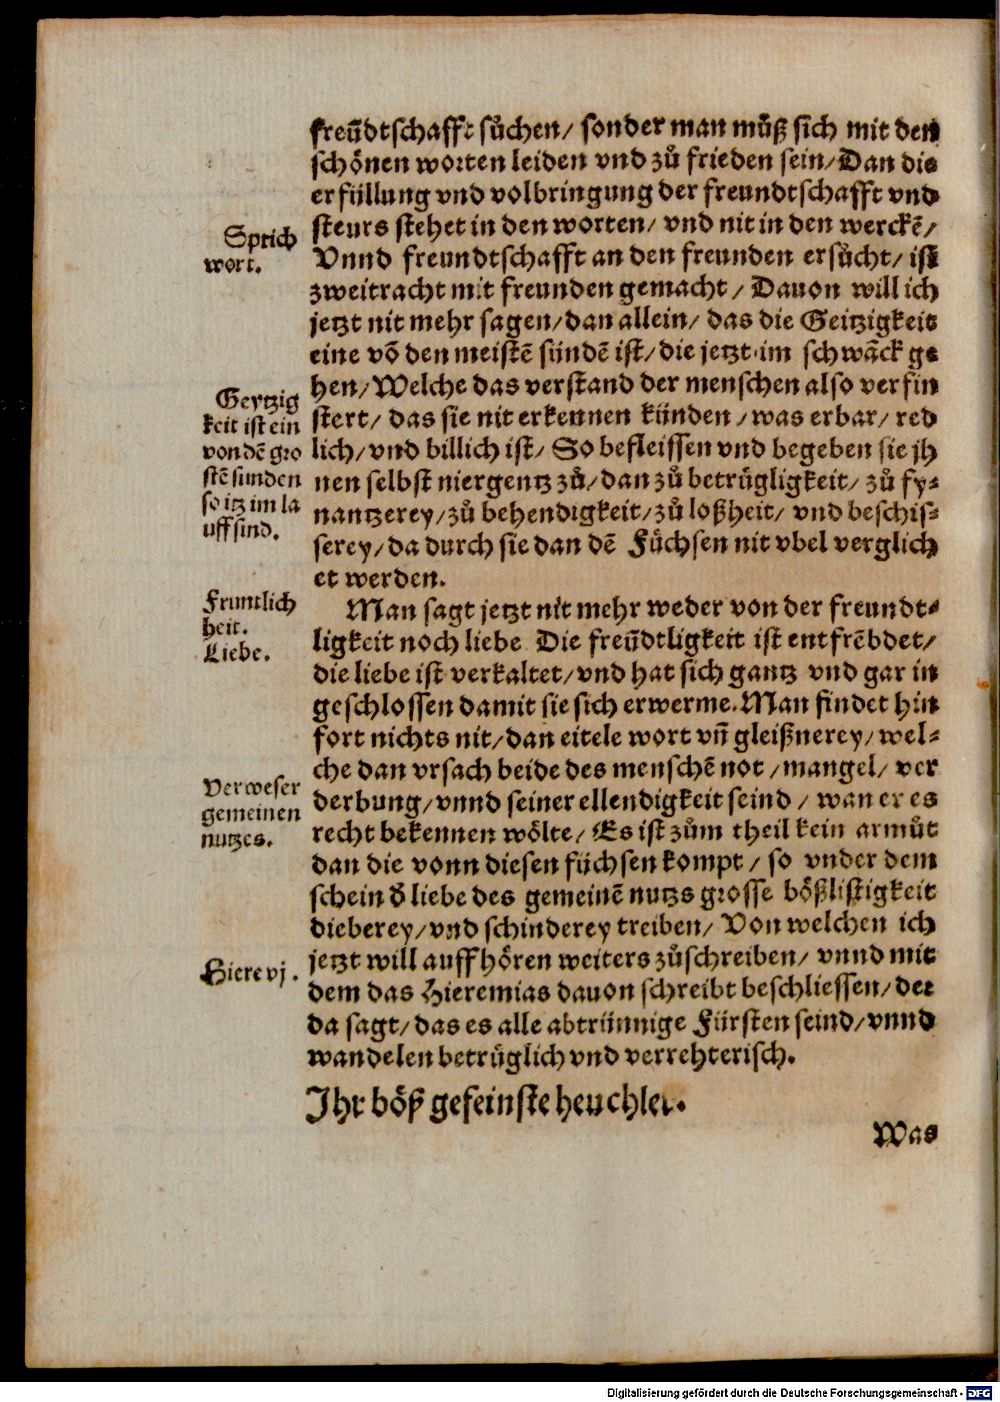 freūdtschafft sůchen/ sonder man můß sich mit den
schönen worten leiden vnd zů frieden sein/ Dan die
erfüllung vnd volbringung der freundtschafft vnd
steurs stehet in den worten/ vnd nit in den werckē/
Sprich
wort.
Vnnd freundtschafft an den freunden ersůcht/ ist
zweitracht mit freunden gemacht/ Dauon will ich
jetzt nit mehr sagen/ dan allein/ das die Geitzigkeit
eine vō den meistē sündē ist/ die jetzt im schwāck ge
hen/ Welche das verstand der menschen also verfin
stert/ das sie nit erkennen künden/ was erbar/ red
lich/ vnd billich ist/ So befleissen vnd begeben sie jh
nen selbst niergentz zů/ dan zů betrüglịgkeit/ zů fy-
nantzerey/ zů behendigkeit/ zů loßheit/ vnd beschis-
serey/ da durch sie dan dē Füchsen nit vbel verglich
et werden.
Geytzig
keit ist ein
von dē gro
stē sunden
so itz im la
uff sind.
Man sagt jetzt nit mehr weder von der freundt-
ligkeit noch liebe Die freūdtligkeit ist entfrēbdet/
die liebe ist verkaltet/ vnd hat sich gantz vnd gar in
geschlossen damit sie sich erwerme. Man findet hin
fort nichts nit/ dan eitele wort vñ gleißnerey/ wel-
che dan vrsach beide des menschē not/ mangel/ ver
derbung/ vnnd seiner ellendigkeit seind/ wan er es
recht bekennen wölte/ Es ist zům theil kein armůt
dan die vonn diesen füchsen kompt/ so vnder dem
schein d̄ liebe des gemeinē nutzs grosse bößlistigkeit
dieberey/ vnd schinderey treiben/ Von welchen ich
jetzt will auffhören weiters zůschreiben/ vnnd mit
dem das Hieremias dauon schreibt beschliessen/ der
da sagt/ das es alle abtrünnige Fürsten seind/ vnnd
wandelen betrüglich vnd verrehterisch.
Fruntlich
heit.
Liebe.
Verweser
gemeinen
nutzes.
Hiere vj.
Ihr böß gefeinste heuchler.
Was
Digitalisierung gefördert durch die Deutsche Forschungsgemeinschaft - DFG